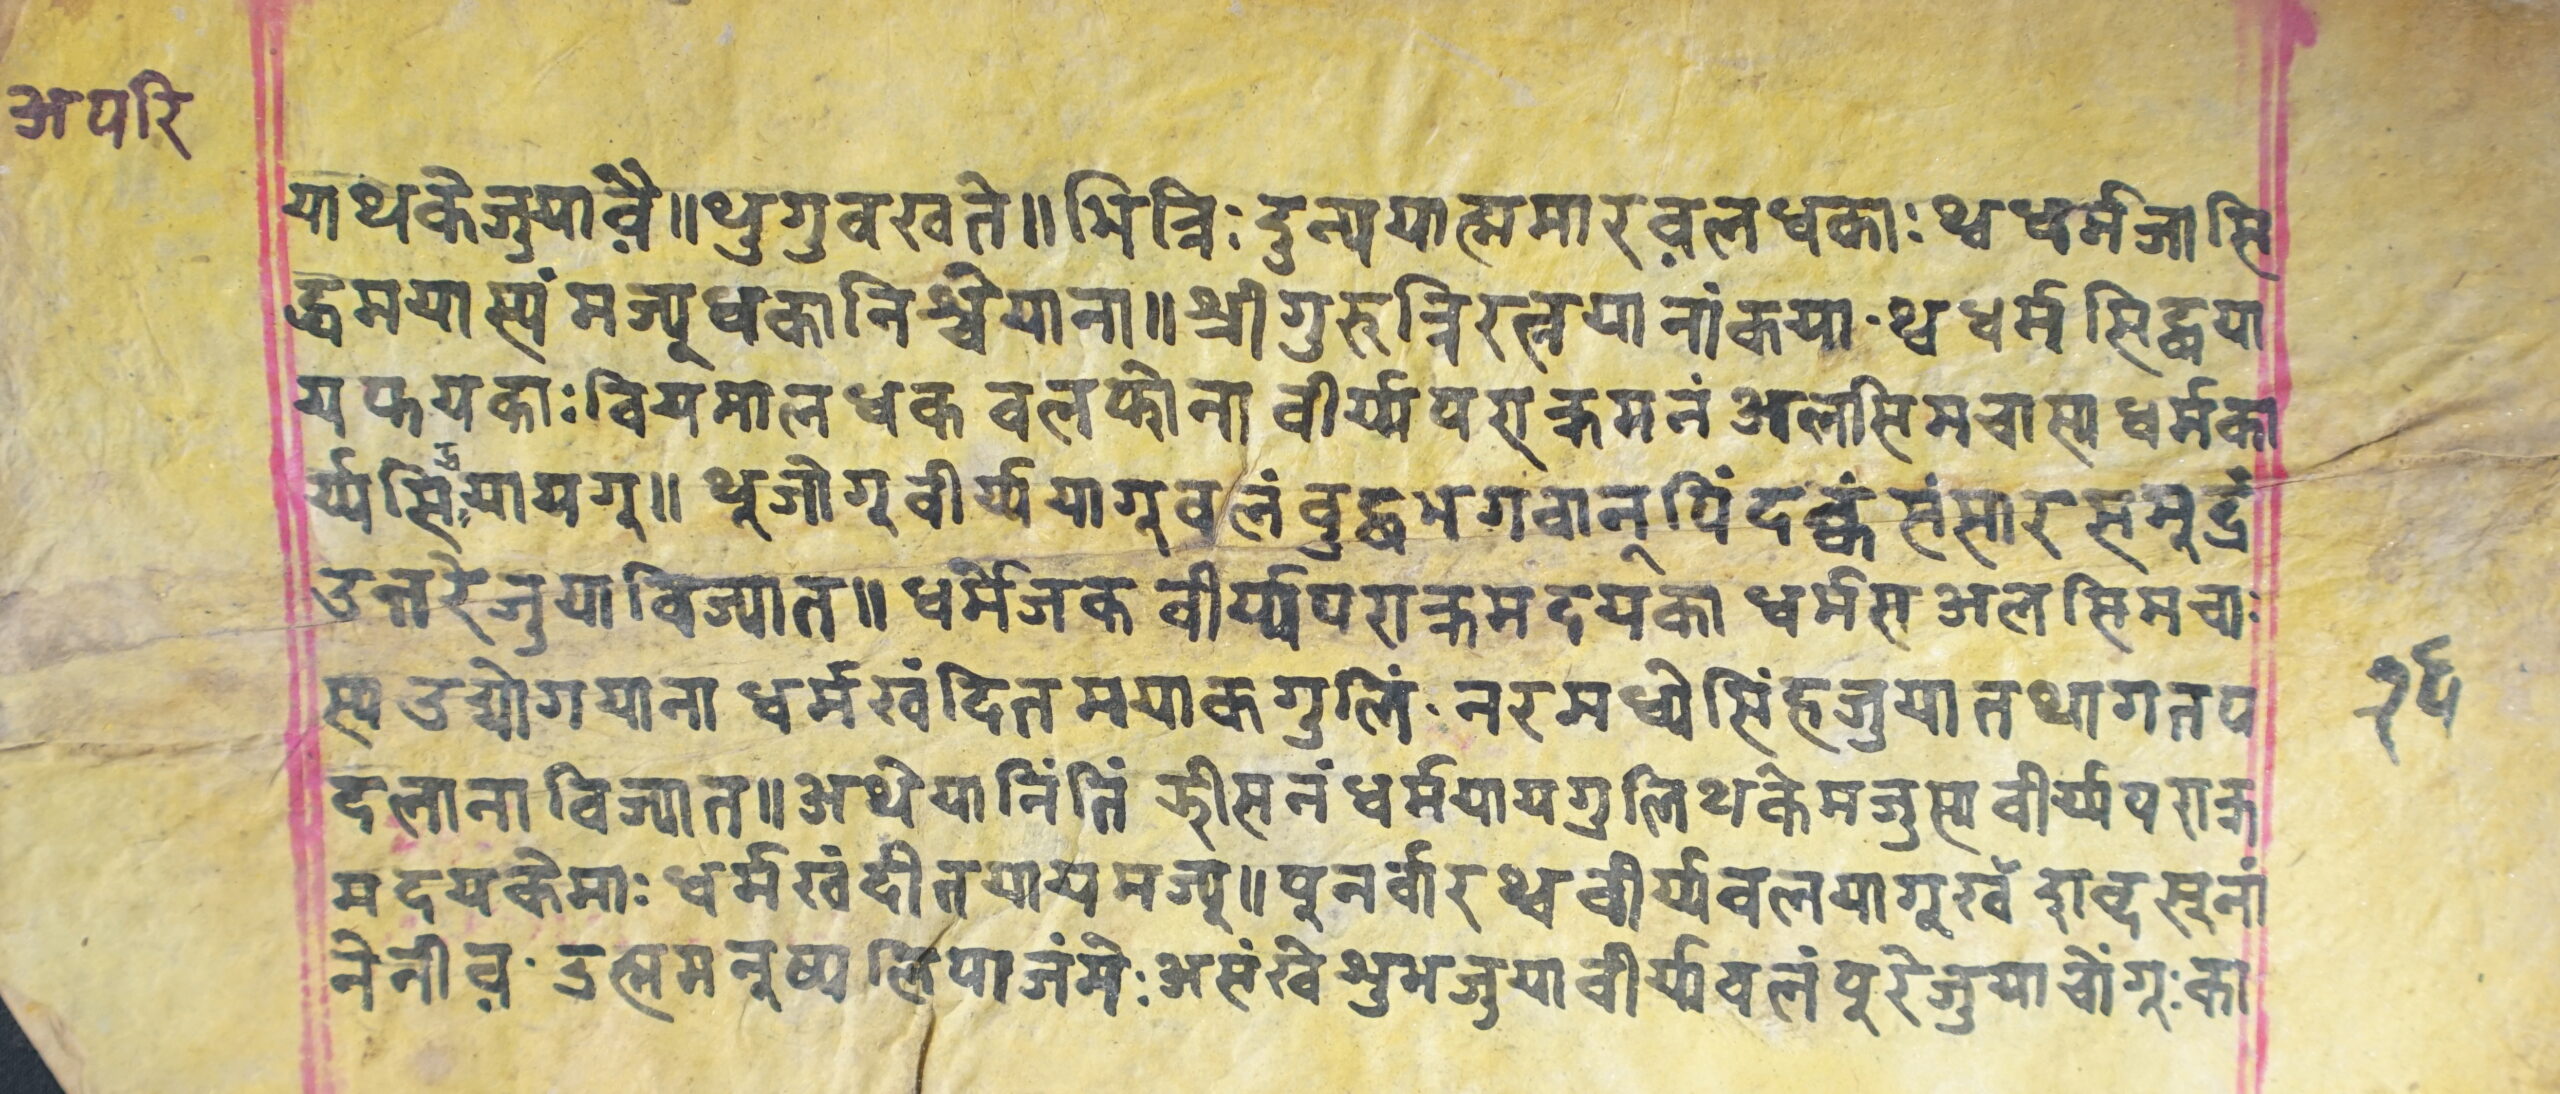 अपरि
याथकेजुयाव़ै॥थुगुवखते॥भिन्निः दुन्पयात्ममारव़लधकाः थ्वधर्मजासि
द्धमयास्यं मज्यूधकानिश्चेयाना॥श्रीगुरुन्निरत्नयानांकया·थ्वधर्म सिद्धया
यफयकाः वियमालधक वलफोना वीर्य्यपराक्रमनं अलसिमचास्य धर्मका
र्य्यसिद्धयायगु॥ थूजोगू वीर्य्ययागू वलं वुद्धभगवान् पिंदक्वं संसारसमुद्रं
उत्तरेजुयाविज्यात॥ धर्मेजक वीर्य्यपराक्रमदयका धर्मस अलसिमचाः
स्य उद्योगयाना धर्मखंदितमयाकगुलिं·नरमध्येसिंहजुया तथागतप
दलानाविज्यात॥अथेयानिंतिं झीसनं धर्मयायगुलिथकेमजुस्य वीर्य्यपराक्र
मदयकेमाः धर्मखंदीतयायमज्यू॥पुनर्वार थ्ववीर्य्यवलयागूखँ शव्दस्रूनां
नेनीव़·उत्ममनूष्य लिपाजंमेः असंखे शुभजुया वीर्य्यवलं पूरेजुयाचोंगूः का
२६